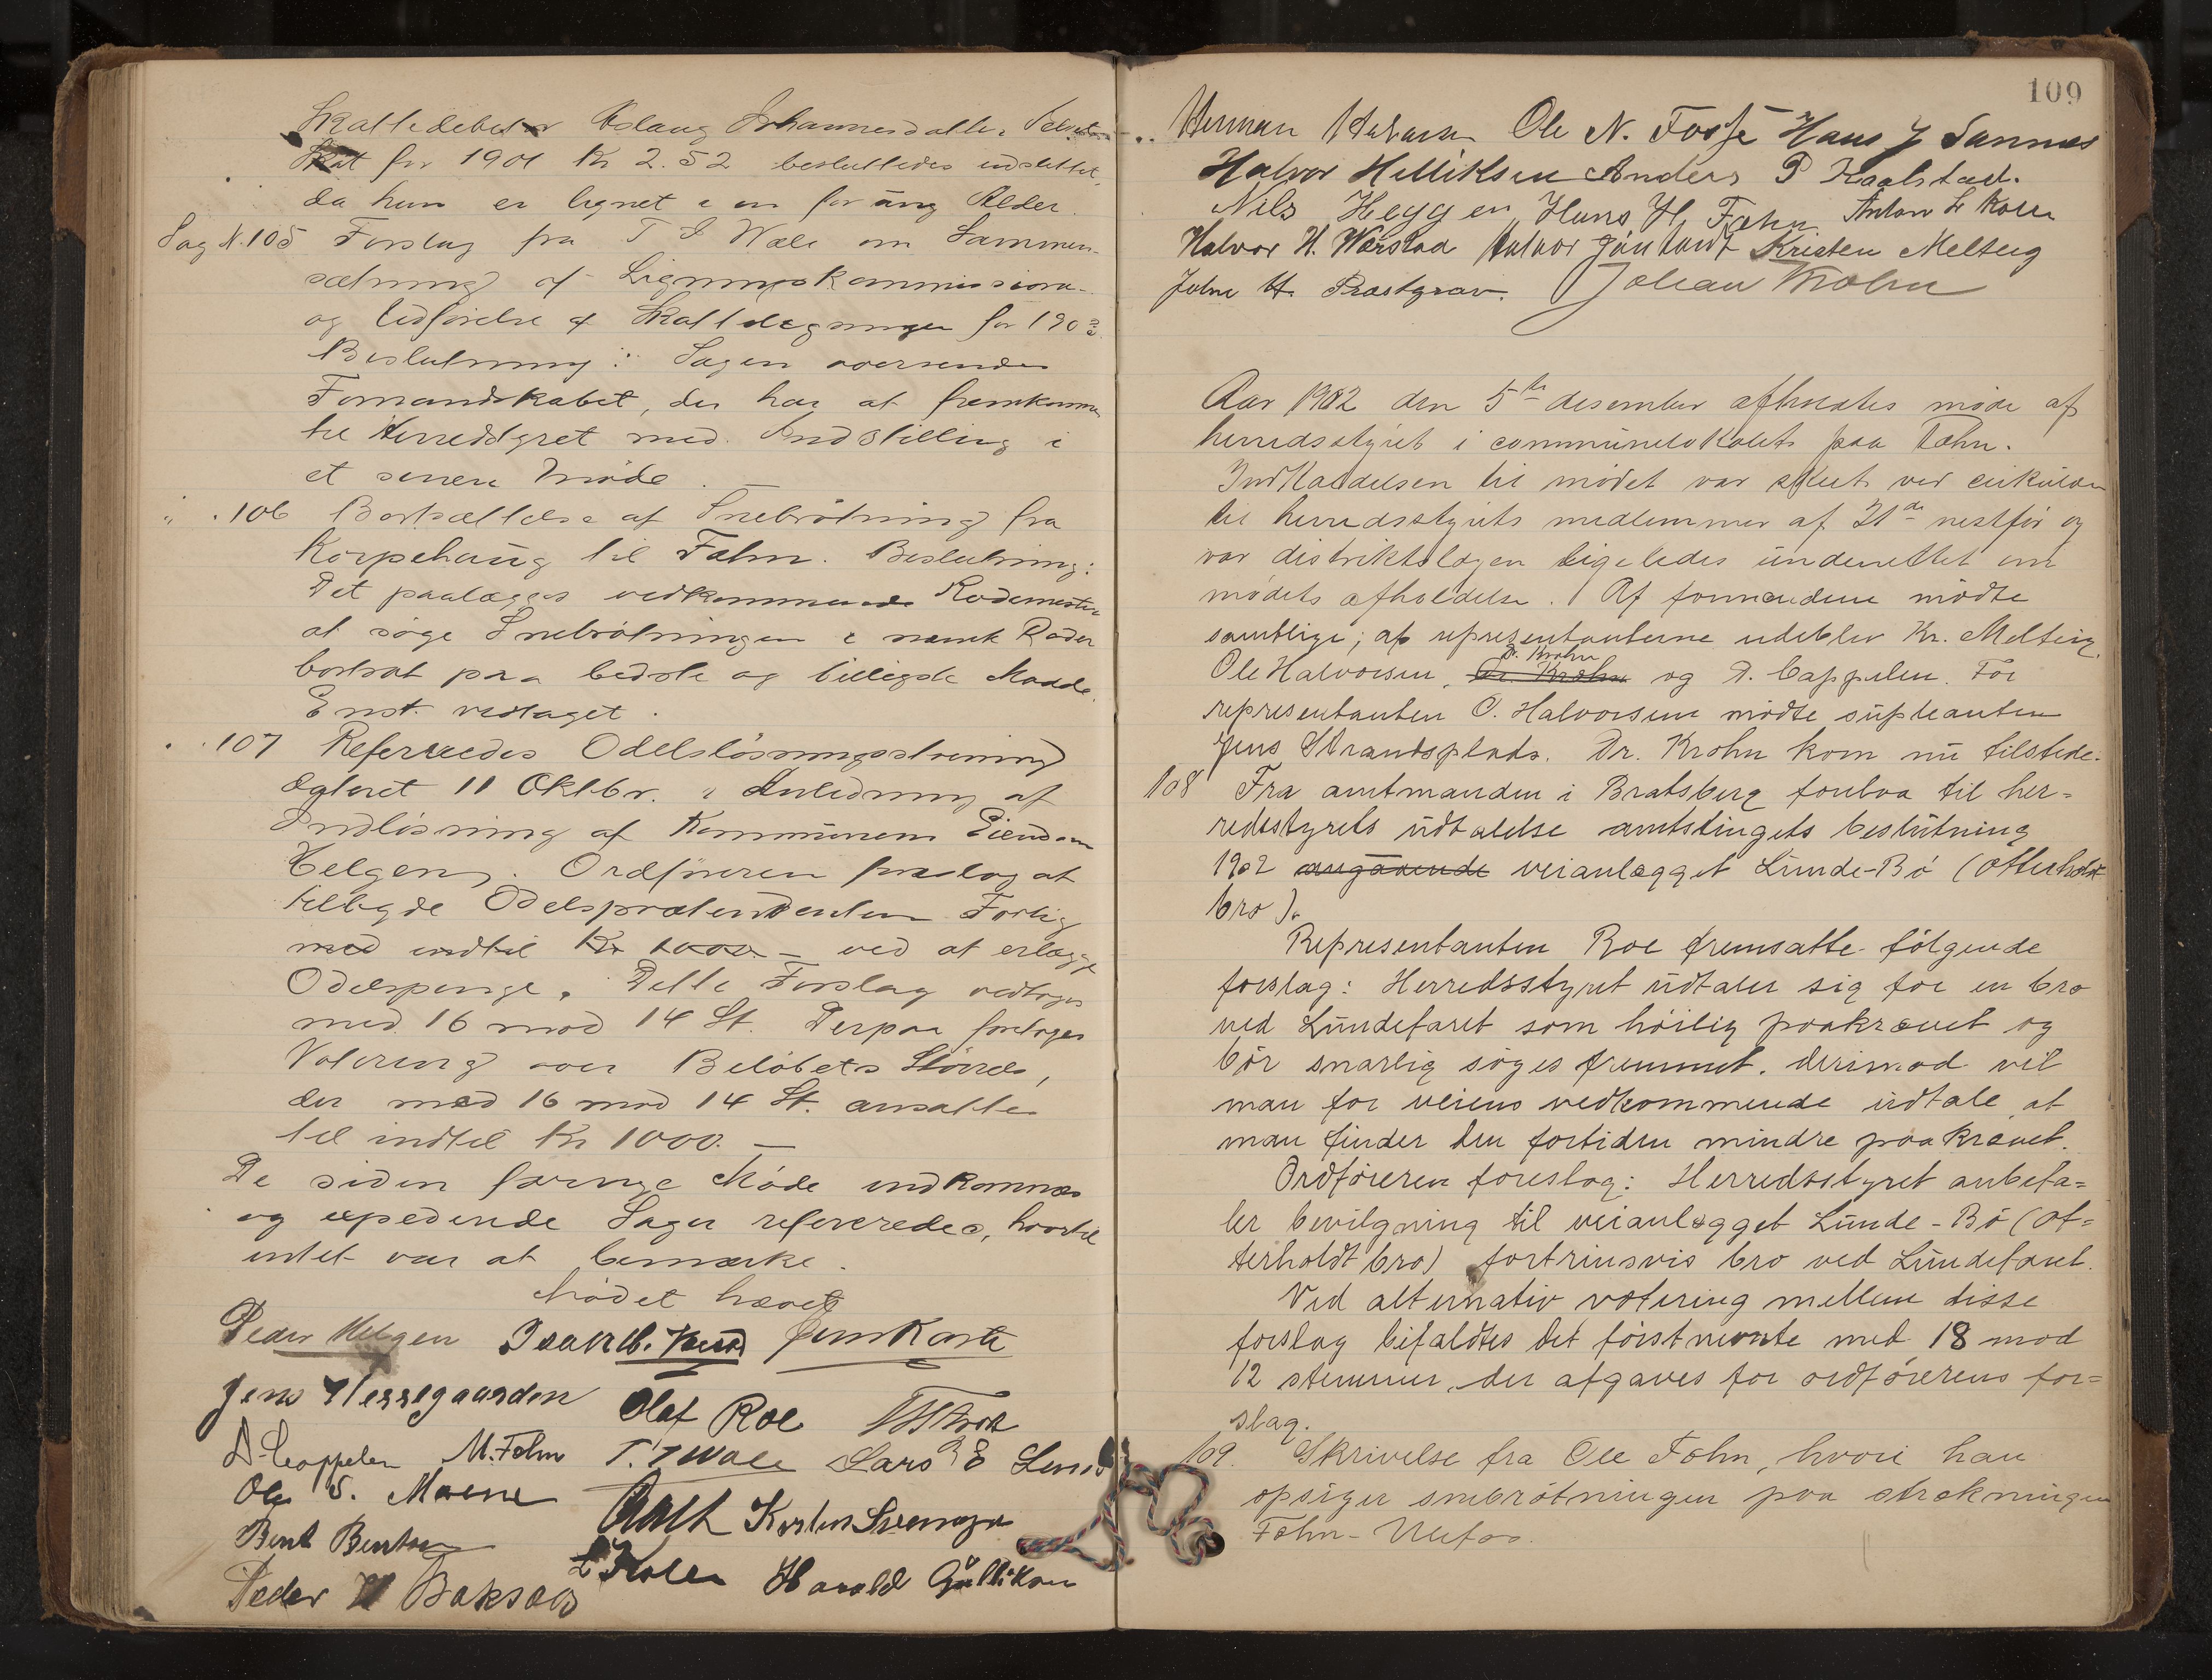 Skattedebet Aslaug Johannesdatter
Skat for 1901 Kr 2.52 besluttedes udslettet,
da hun er lignet i en for ung Alder.
Sag N. 105 Forslag fra T I Wale om Sammen-
sætning af Ligningskommissionen
og Udførelse af Skatteligningen for 1903.
Beslutning: Sagen oversendes
Formandskabet, der har at fremkomme
til Herredsstyret med Indstilling i
et senere Møde.
" . 106 Bortsættelse af Snebrøtning fra
Korpehaug til Fæhn. Beslutning:
Det paalægges vedkommende Rodemestre
at søge Snebrøtningen i nævnte Roder
bortsat paa bedste og billigste Maade.
Enst. vedtaget.
" . 107 Refereredes Odelsløsningsstevning
dateret 11 Oktbr. i Anledning af
Indløsning af Kommunens Eiendom
Helgen. Ordføreren foreslog at
tilbyde Odelsprætendenten Forlig
med indtil Kr 1000.- ved at erlægge
Odelspenge. Dette Forslag vedtoges
med 16 mod 14 St. Derpaa foretoges
Votering over Beløbets Størrelse,
der med 16 mod 14 St. ansattes
til indtil Kr 1000.-
De siden forrige Møde indkomne
og expederede Sager refereredes, hvortil
intet var at bemærke.
Mødet hævet
Peder Helgen Isak Jens Kaste
Jens Hessegaarden Olaf Roe
D Cappelen M. Fæhn T. I Wale Lars E Lund
Ole S. Moene Karsten Svenseja
Bent Bentsen
Peder H Baksaas L Kolen Harald Gullikson
109
Herman Halvorsen Ole N. Fosse Hans J Sannes
Halvor Helliksen Anders P Kaalstad.
Nils Heggen, Hans H. Fæhn Anton L Kolen
Halvor H. Wærstad Halvor Gjuklandt Kristen Melteig
John H. Præstgrav. Johan Krohn
Aar 1902 den 5te desember afholdtes møde af
herredsstyret i communelokalet paa Fæhn.
Indkaldelsen til mødet var skeet ved cirkulære
til herredsstyrets medlemmer af 21de nestfør og
var distriktslægen ligeledes underrettet om
mødets afholdelse. Af formændene mødte
samtlige; af representanterne udeblev Kr. Melteig,
Ole Halvorsen, Dr. Krohn og D. Cappelen. For
representanten O. Halvorsen mødte supleanten
Jens Strandsplads. Dr. Krohn kom nu tilstede.
108 Fra amtmanden i Bratsberg forelaa til her=
redsstyrets udtalelse amtstingets beslutning
1902 angaaende veianlægget Lunde-Bø (Otterholdt
bro).
Representanten Roe fremsatte følgende
forslag: Herredsstyret udtaler sig for en bro
ved Lundefaret som høilig paakrævet og
bør snarlig søges fremmet. derimod vil
man for veiens vedkommende udtale, at
man finder den fortiden mindre paakrævet.
Ordføreren foreslog: Herredsstyret anbefa=
ler bevilgning til veianlægget Lunde-Bø (Ot=
terholdt bro) fortrinsvis bro ved Lundefaret.
Ved alternativ votering mellem disse
forslag bifaldtes det førstnevnte med 18 mod
12 stemmer, der afgaves for ordførerens for=
slag.
109. Skrivelse fra Ole Fæhn, hvori han
opsiger snebrøtningen paa strekningen
Fæhn-Ulefos.